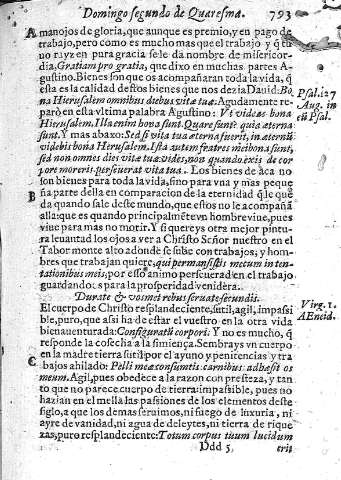 Domingo segundo de Quaresma. 793
A manojos de gloria, que aunque es premio, y en pago de
trabajo, pero como es mucho mas que el trabajo y q̃ tu
no rayz en pura gracia se le da nombre de misericor
dia, Gratiam pro gratia, que dixo en muchas partes A
gustino. Bienes son que os acompañaran toda la vida, q̃
esta es la calidad destos bienes que nos dezia Dauid: Bo
na Hierusalem omnibus diebus vitæ tuæ. Agudamente re
parò en esta vltima palabra Agustino: Vt videas bona
Hierusalem. Illa enim bona sunt. Quare sunt? quia æterna
sunt. Y mas abaxo: Sed si vita tua æterna fuerit, in æternũ
videbis bona Hierusalem. Ista autem fratres mei bona sunt,
sed non omnes dies vitæ tuæ vides, non quando exis de cor
pore moreris perseuerat vita tua. Los bienes de aca no
son bienes para toda la vida, sino para vna y mas peque
B ña parte della en comparacion de la eternidad q̃ le que
da quando sale deste mundo, que estos no le acompañã
alla: que es quando principalmẽte vn hombre viue, pues
viue para mas no morir. Y si quereys otra mejor pintu-
ra leuantad los ojos a ver a Christo Señor nuestro en el
Tabor monte alto adonde se sube con trabajos, y hom
bres que trabajan quiere, qui permansistis mecum in ten-
tationibus meis, por esso animo perseuerad en el trabajo
guardandoos para la prosperidad venidera.
Durate & vosmet rebus seruate secundis.
El cuerpo de Christo resplandeciente, sutil, agil, impassi
ble, puro, que assi ha de estar el vuestro en la otra vida
bienauenturada: Configuratũ corpori. Y no es mucho, q̃
responde la cosecha a la simiença. Sembrays vn cuerpo
en la madre tierra sutil por el ayuno y penitencias y tra
C bajos ahilado: Pelli meæ consumtis carnibus adhæsit os
meum. Agil, pues obedece a la razon con presteza, y tan
to que no parece cuerpo de tierra impassible, pues no
hazian en el mella las passiones de los elementos deste
siglo, a que los demas seraimos, ni fuego de luxuria, ni
ayre de vanidad, ni agua de deleytes, ni tierra de rique
zas, puro resplandeciente: Totum corpus tuum lucidum
Ddd 5 erit
Psal. 127
Aug. in
eũ Psal.
Virg. 1.
Æneid.